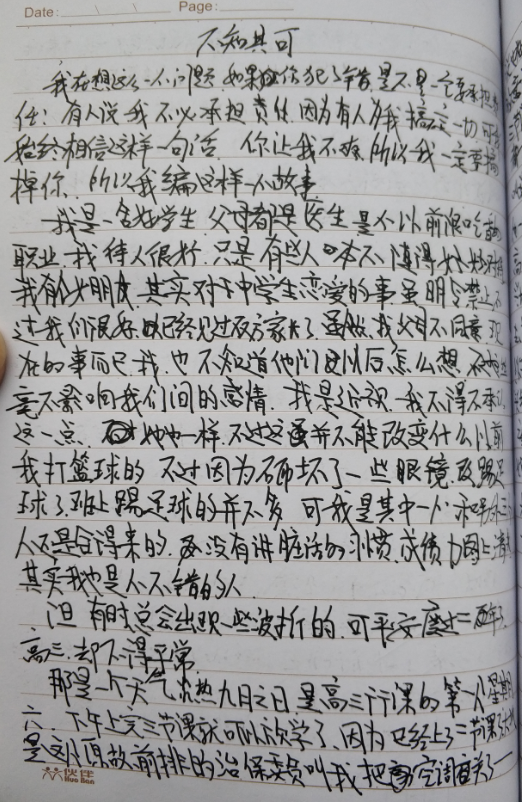 Date: Page:
不知其可
我在想这么一个问题,如果你犯了错,是不是一定要承担责
任?有人说我不必承担责任,因为有人为我搞定一切,可我
始终相信这样一句话,你让我不爽,所以我一定要搞
掉你,所以我编这样一个故事
我是一名好学生,父母都是医生,是个以前很吃香的
职业,我待人很好,只是有些人本不值得
我有个女朋友,其实对于中学生恋爱的事虽明令禁止,不
过我们很好,已经见过双方家长了,虽然,我父母不同意,现
在的事而已,我也不知道他们以后怎么想,
毫不影响我们间的感情,我是近视,我不得不承认
这一点,她也一样,不过这并不能改变什么,以前
我打篮球的,不过因为砸坏了一些眼镜,改踢足
球了,班上踢足球的并不多,可我是其中一个,和另外三
人还是合得来的,还没有讲脏话的习惯,成绩力图上
其实我也是个不错的人
但有时总会出现一些波折的,可平安度过二
高三,却不得寻常
那是一个天气炎热九月之日,是高三行课的第一个星期
六,下午上完三节课就可以放学了,因为已经上了三节课
原故,前排的治保委员叫我把空调关了
伙伴
Huo Ban